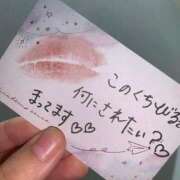 このくちびると
何にされたい？
まってます♡♡